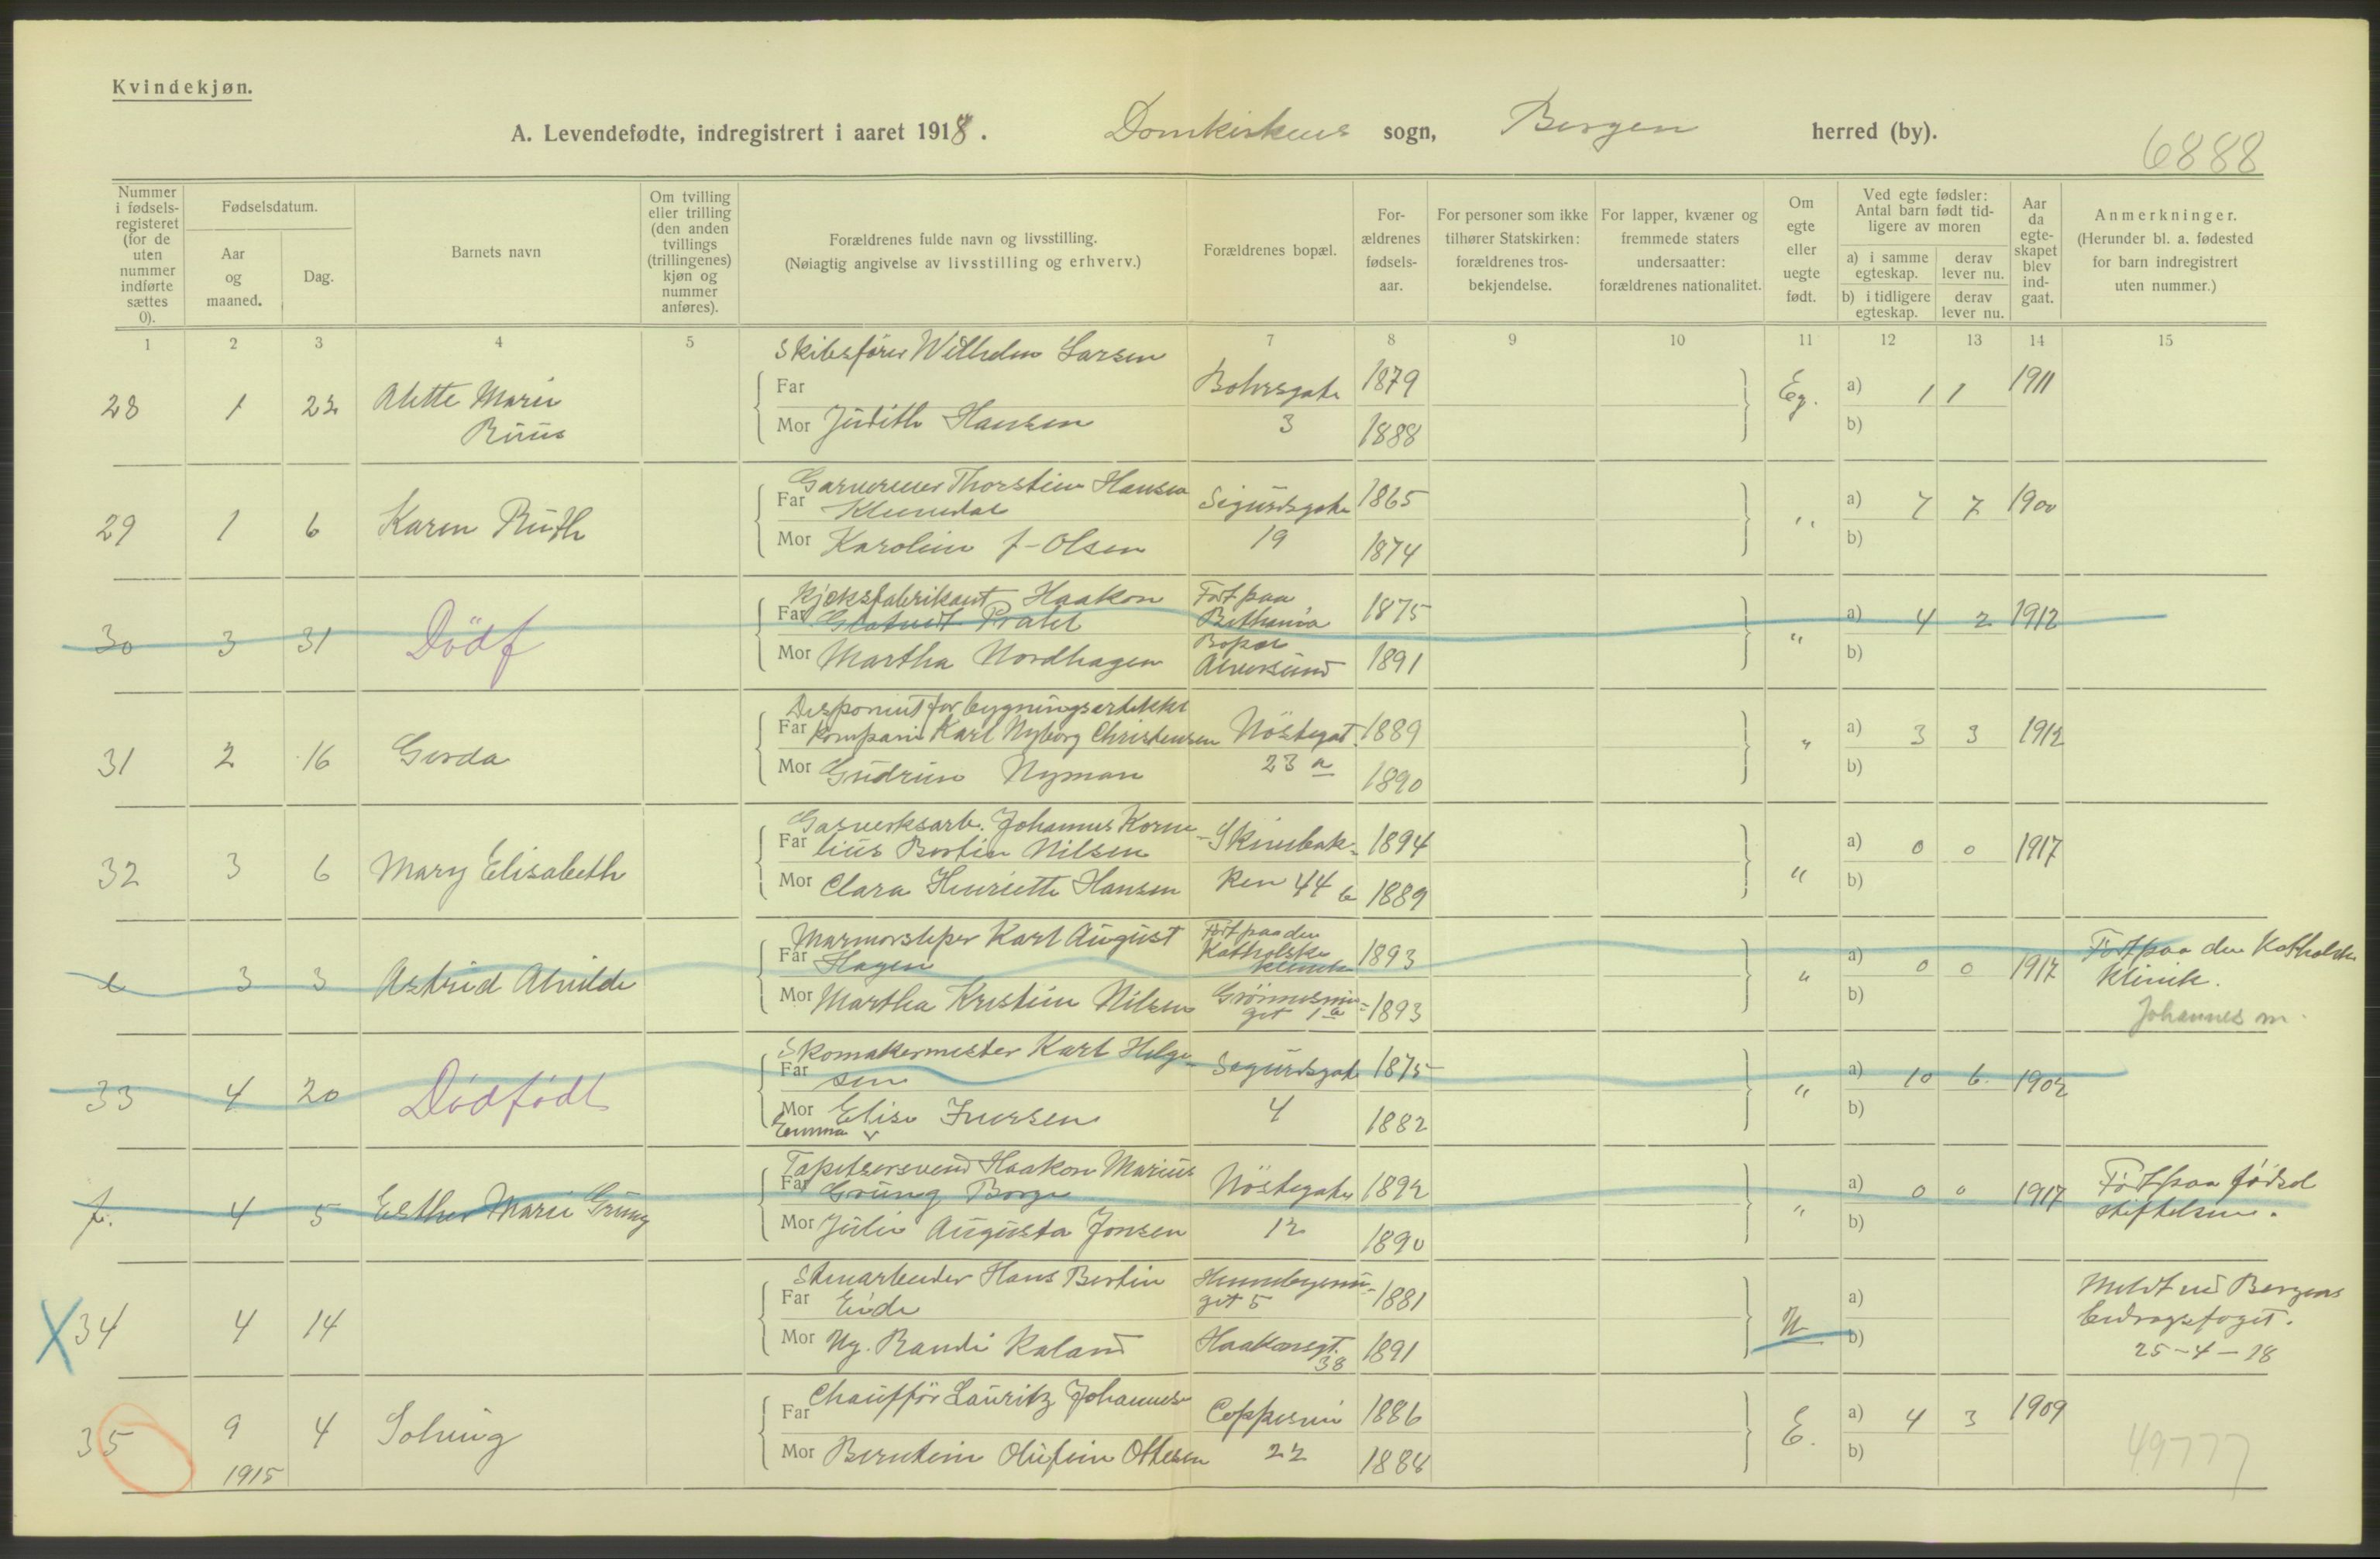 Kvindekjøn.
A. Levendefødte, indregistrert i aaret 1918. Domkirkens sogn, Bergen herred (by).
6888
Nummer i fødsels-registeret (for de uten nummer indførte sættes 0).
Fødselsdatum.
Aar og maaned.
Dag.
Barnets navn
Om tvilling eller trilling (den anden tvillings (trillingenes) kjøn og nummer anføres).
Forældrenes fulde navn og livsstilling.
(Nøiagtig angivelse av livsstilling og erhverv.)
Forældrenes bopæl.
For-ældrenes fødsels-aar.
For personer som ikke tilhører Statskirken: forældrenes tros-bekjendelse.
For lapper, kvæner og fremmede staters undersaatter: forældrenes nationalitet.
Om egte eller uegte født.
Ved egte fødsler: Antal barn født tid-ligere av moren
a) i samme egteskap.
derav lever nu.
b) i tidligere egteskap.
derav lever nu.
Aar da egte-skapet blev ind-gaat.
Anmerkninger.
(Herunder bl. a. fødested for barn indregistrert uten nummer.)
1 2 3 4 5 7 8 9 10 11 12 13 14 15
Skibsfører Wilhelm Larsen
28 1 22 Alette Marie Far Bohrsgate 1879 Eg. a) 1 1 1911
Ruus Mor Judith Hansen 3 1888 b)
Garverisver Thorstein Hansen
29 1 6 Karen Ruth Far Sigurdsgate 1865 " a) 7 7 1900
Mor Karoline f. Olsen 19 1874 b)
Kjeksfabrikant Haakon Født paa
30 3 31 Dödf Far Bethania 1875 " a) 4 2 1912
Bopæl
Mor Martha Nordhagen Alversund 1891 b)
Disponent for bygningsartikkel
31 2 16 Gerda Far kompani Karl Nyborg Christensen Nöstegat. 1889 " a) 3 3 1912
Mor Gudrun Nyman 23 a 1890 b)
Gasverksarb. Johannes Korne-
32 3 6 Mary Elisabeth Far lius Bertin Nilsen Skivebak- 1894 " a) 0 0 1917
Mor Clara Henriette Hansen ken 44 b 1889 b)
Marmorsliper Karl August Født paa den
3 3 Astrid Alvilde Far Hagen Katholske Klinik 1893 " a) 0 0 1917 Født paa den Katholske
Klinik.
Mor Martha Kristine Nilsen 1 a 1893 b) Johannes m.
Skomakermester Karl Helge-
33 4 20 Dödfödt Far sen Sigurdsgate 1875 " a) 10 6 1902
Mor Elise Iversen 4 1882 b)
Emma
Tapetserersvend Haakon Marius
f. 4 5 Esther Marie Grung Far Grung Borge Nöstegaten 1892 " a) 0 0 1917 Født paa födsel
stiftelsen.
Mor Julie Augusta Jonsen 12 1890 b)
Stenarbeider Hans Bertin
X 34 4 14 Far Eide get 5 1881 U a) Meldt ved Bergens
bidragsfoget.
Mor Ug. Randi Kaland Haakonsgt. 38 1891 b) 25-4-18
Chaufför Lauritz Johannesen
35 9 4 Solveig Far Coppesmu 1886 E. a) 4 3 1909
1915 Mor Berntine Olufine Ottesen 22 1884 b)
49777